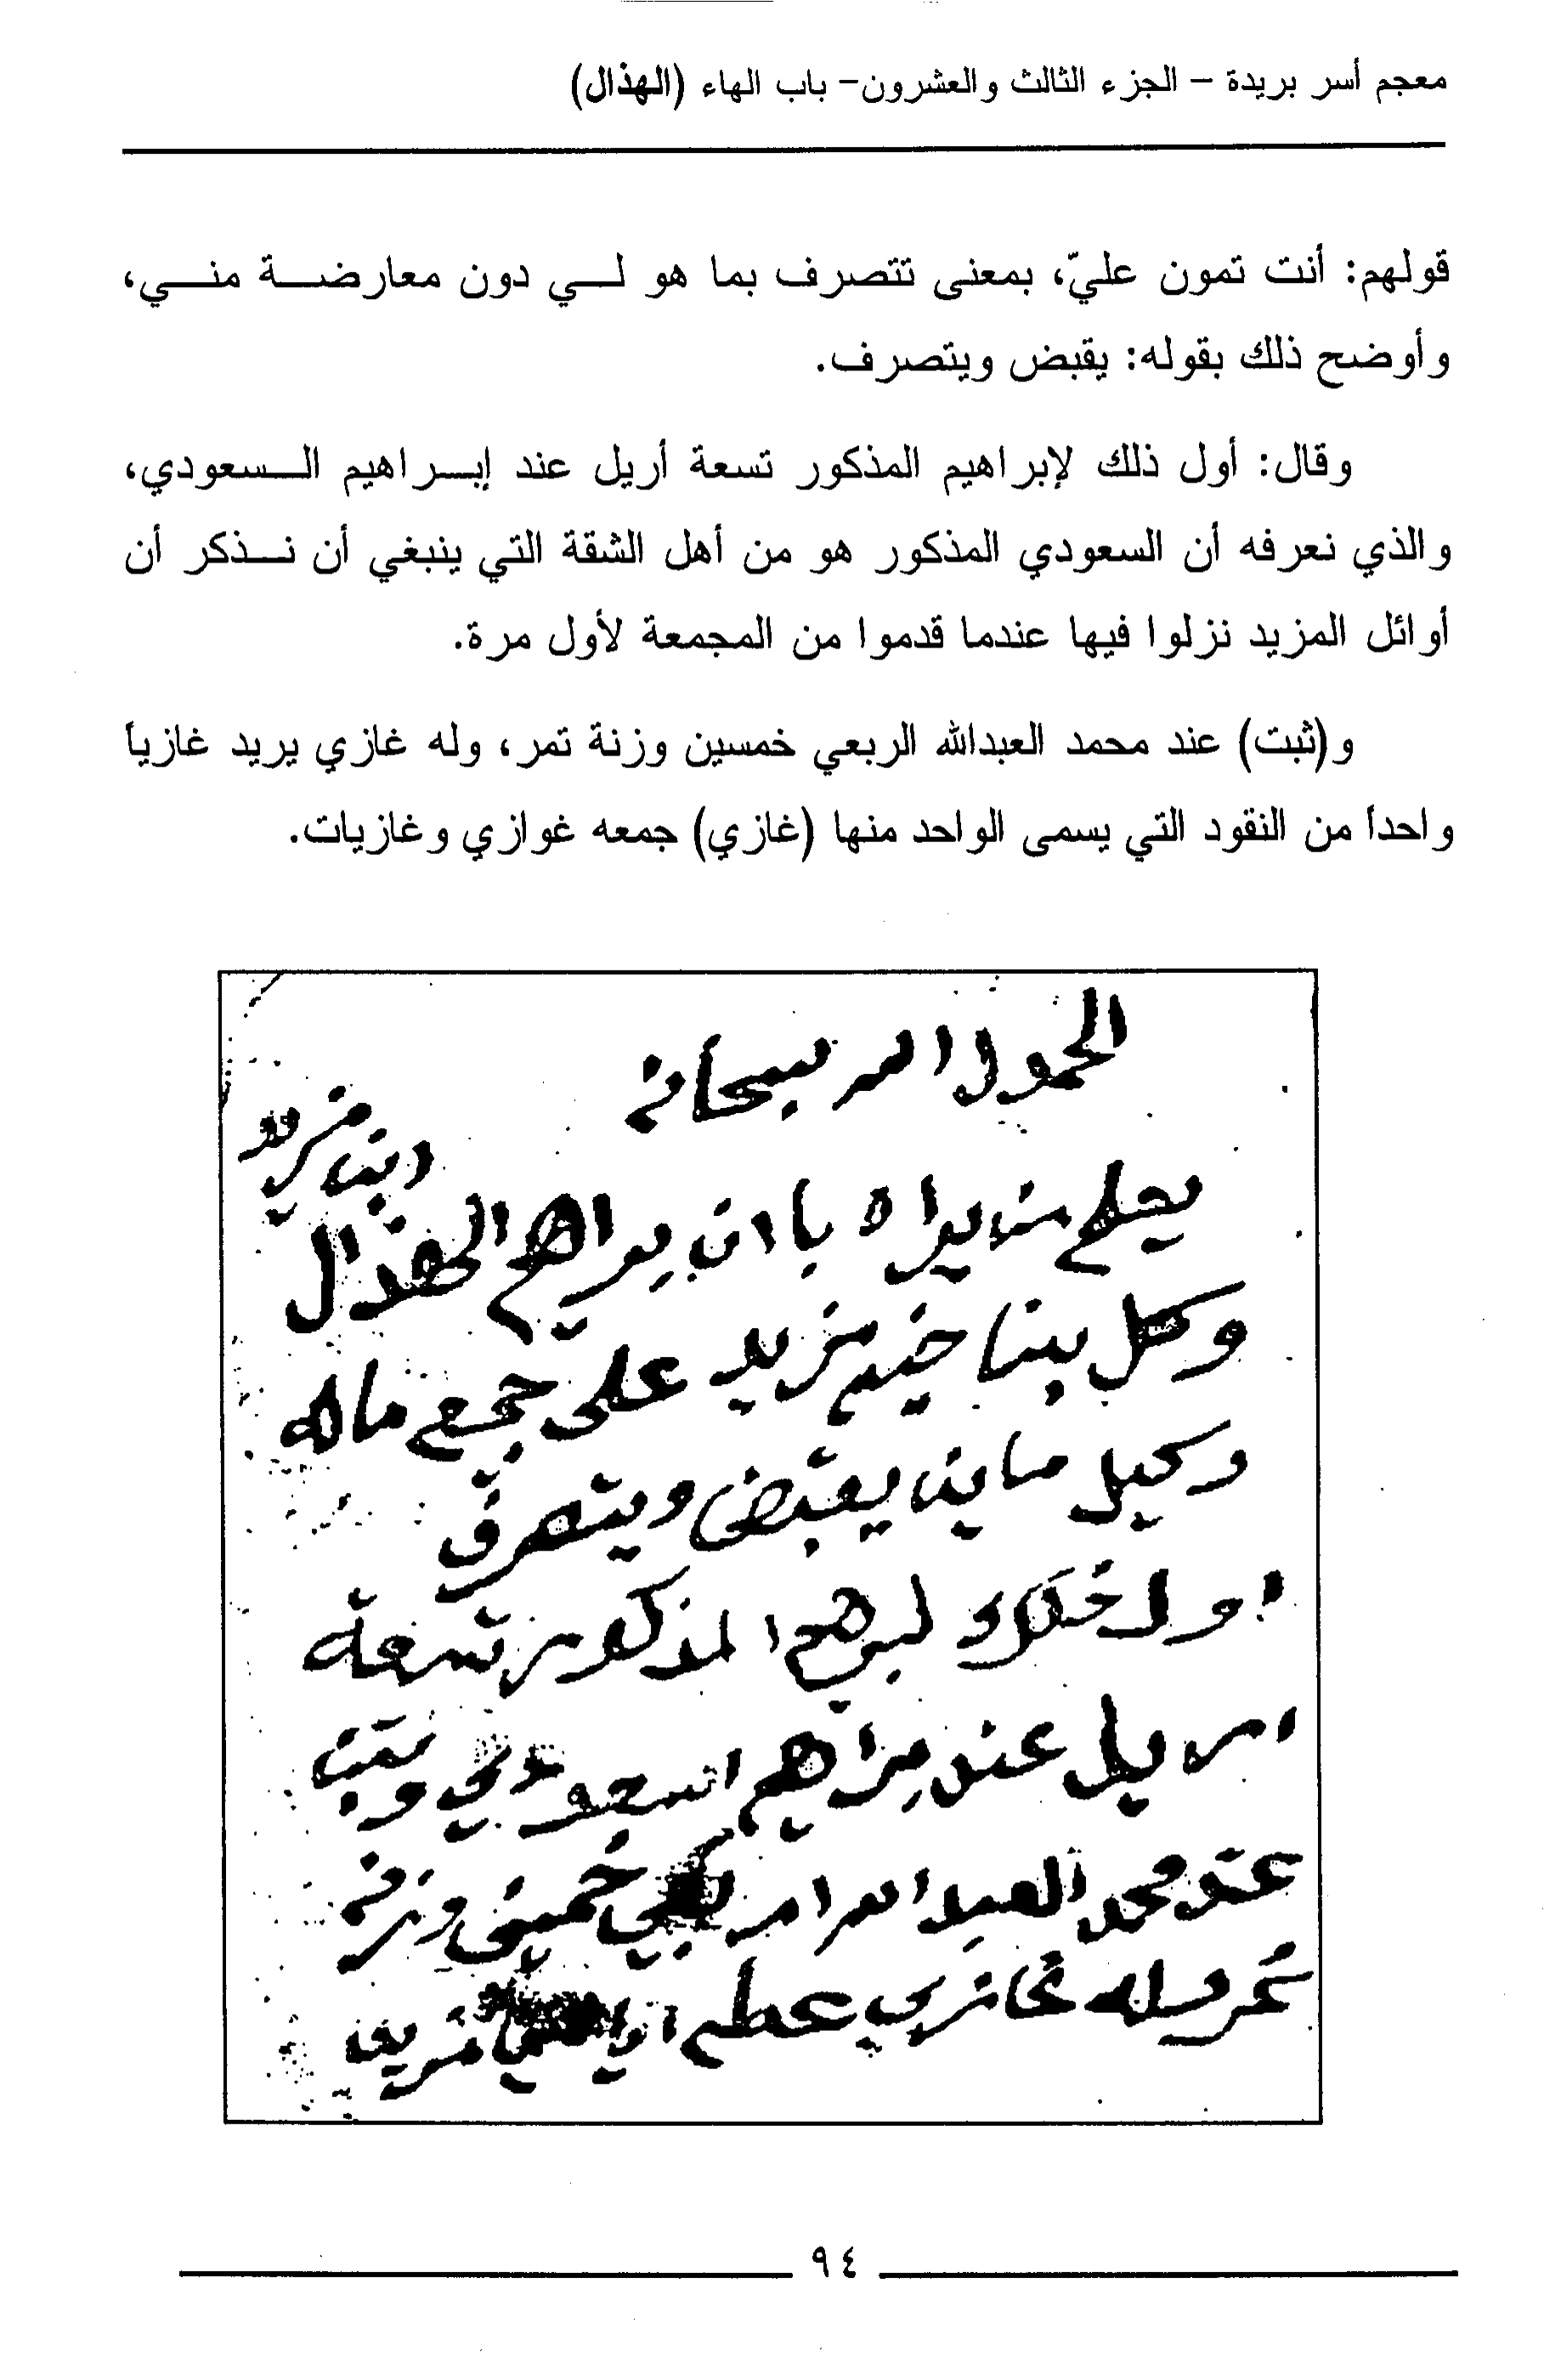 معجم أسر بريدة – الجزء الثالث والعشرون– باب الهاء (الهذال)
قولهم: أنت تمون عليّ، بمعنى تتصرف بما هو لي دون معارضة مني،
وأوضح ذلك بقوله: يقبض ويتصرف.
وقال: أول ذلك لإبراهيم المذكور تسعة أريل عند إبراهيم السعودي،
والذي نعرفه أن السعودي المذكور هو من أهل الشقة التي ينبغي أن نذكر أن
أوائل المزيد نزلوا فيها عندما قدموا من المجمعة لأول مرة.
و(ثبت) عند محمد العبدالله الربعي خمسين وزنة تمر، وله غازي يريد غازياً
واحداً من النقود التي يسمى الواحد منها (غازي) جمعه غوازي وغازيات.
الحمدل الله سبحانه
ابن مزيد
يعلم من يراه بان براهيم الهذال
وكل بنا خيه مزيد على جميع ماله
وكيل ماين يقبض ويتصرف
اول ذلك لبرهيم المذكور تسعة
اريل عند براهيم السعودي وثبت
عند محمد العبد الله الربعي خمسين وزنه
تمر وله غازي
٩٤